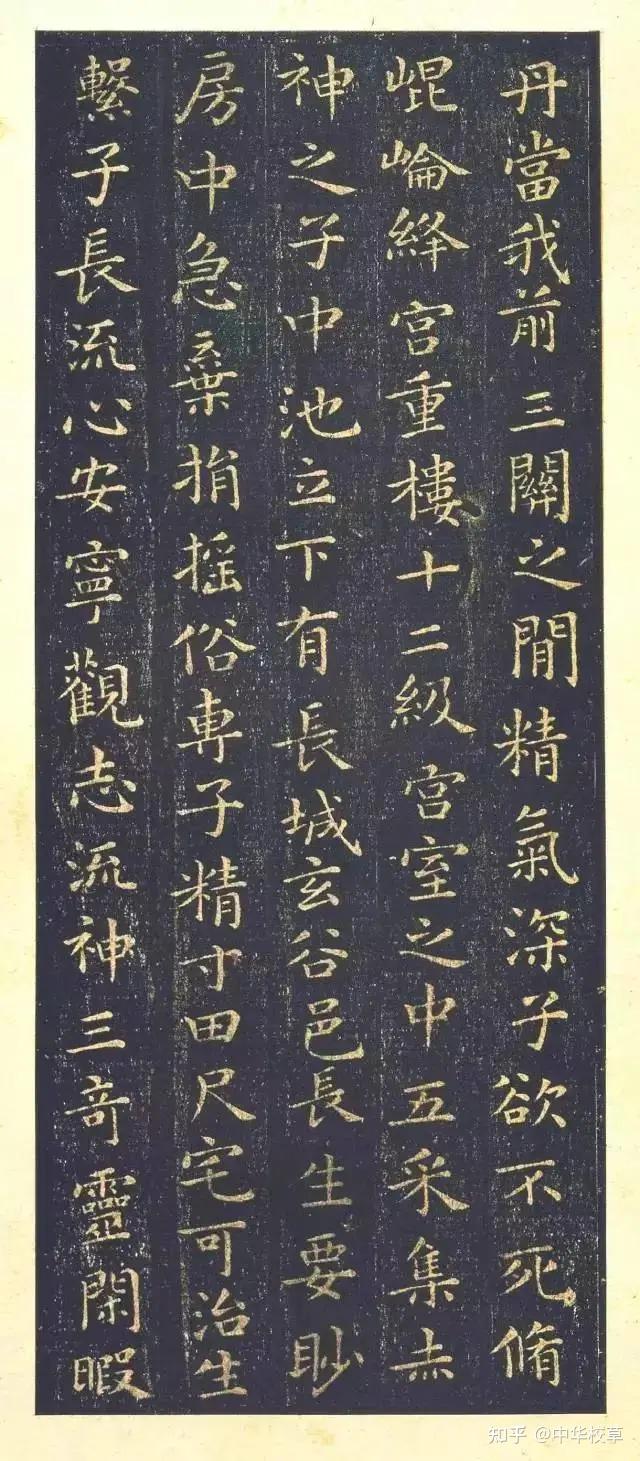 丹當我前三關之間精氣深子欲不死脩
崐崘絳宮重樓十二級宮室之中五采集赤
神之子中池立下有長城玄谷邑長生要眇
房中急棄捐摇俗専子精寸田尺宅可治生
繫子長流心安寧觀志流神三奇靈閑暇
知乎 @中华校草